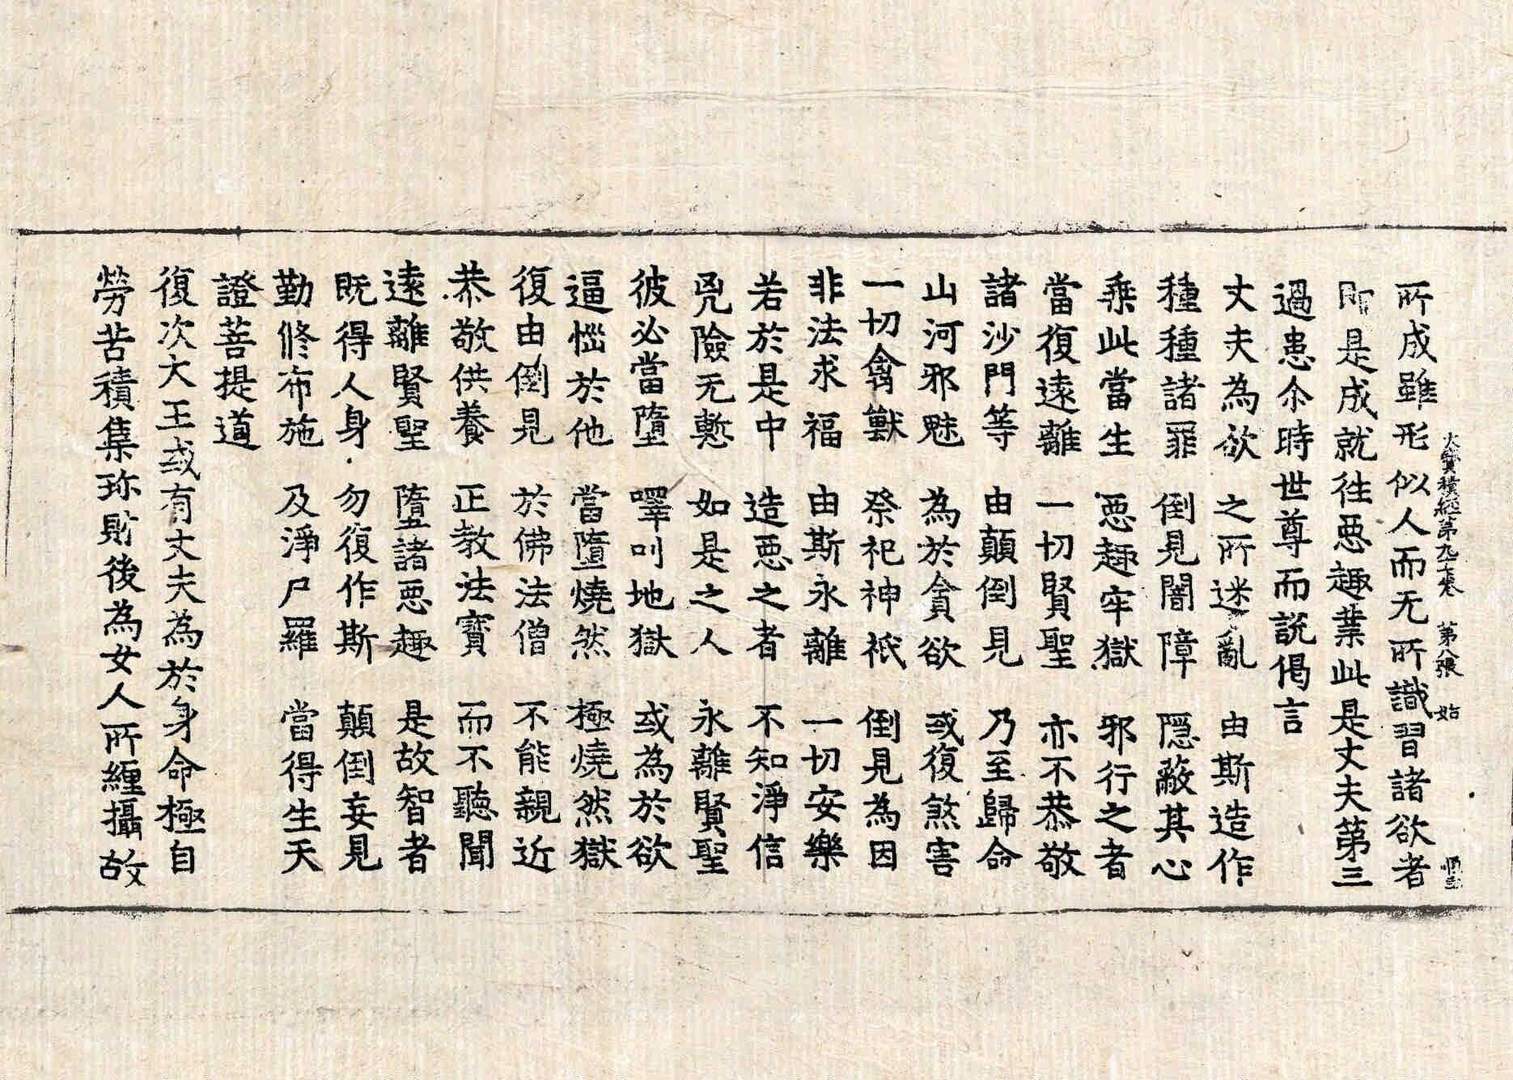 大寶積經第九十七卷 第八張 始
所成雖形似人而无所識習諸欲者
即是成就往惡趣業此是丈夫第三
過患尒時世尊而説偈言
丈夫為欲 之所迷亂 由斯造作
種種諸罪 倒見闇障 隱蔽其心
乗此當生 惡趣牢獄 邪行之者
當復遠離 一切賢聖 亦不恭敬
諸沙門等 由顛倒見 乃至歸命
山河邪魅 為於貪欲 或復煞害
一切禽獸 祭祀神祇 倒見為因
非法求福 由斯永離 一切安樂
若於是中 造惡之者 不知淨信
兇險无慙 如是之人 永離賢聖
彼必當墮 嘷叫地獄 或為於欲
逼惱於他 當墮燒然 極燒然獄
復由倒見 於佛法僧 不能親近
恭敬供養 正教法寳 而不聽聞
遠離賢聖 墮諸惡趣 是故智者
既得人身 勿復作斯 顛倒妄見
勤修布施 及淨尸羅 當得生天
證菩提道
復次大王或有丈夫為於身命極自
勞苦積集珎財後為女人所纏攝故